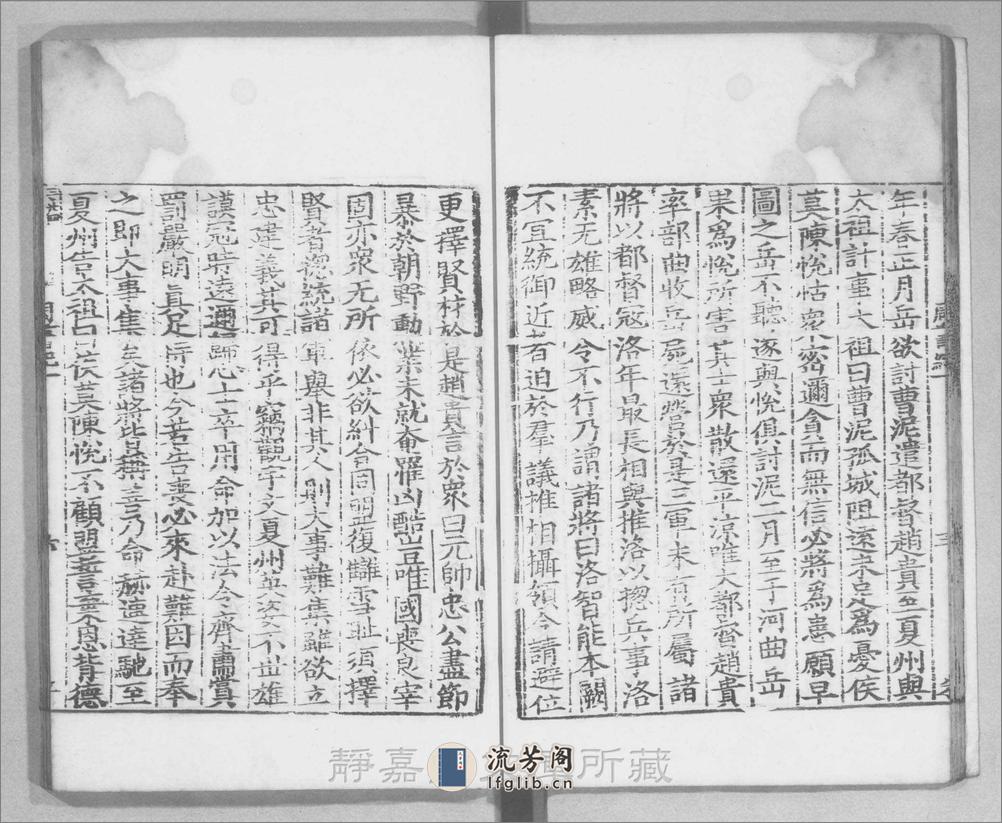 年春正月岳欲討曹泥遣都督趙貴至夏州與
太祖計事太祖曰曹泥孤城阻遠未足為憂侯
莫陳悅怙衆密邇貪而無信必將為患願早
圖之岳不聽遂與悅俱討泥二月至于河曲岳
果為悅所害其士衆散還平涼唯大都督趙貴
率部曲收岳屍還營於是三軍未有所屬諸
將以都督寇洛年最長相與推洛以揔兵事洛
素无雄略威令不行乃謂諸將曰洛智能本闕
不宜統御近者迫於羣議推相攝領今請避位
更擇賢材於是趙貴言於衆曰元帥忠公盡節
暴於朝野勳業未就奄罹凶酷豈唯國喪良宰
固亦衆无所依必欲糾合同盟復讎雪恥須擇
賢者揔統諸軍舉非其人則大事難集雖欲立
忠建義其可得乎竊觀宇文夏州英姿不世雄
謨冠時遠邇歸心士卒用命加以法令齊肅賞
罰嚴明真足恃也今若告喪必來赴難因而奉
之即大事集矣諸將皆稱善乃命赫連達馳至
夏州告太祖曰侯莫陳悅不顧盟誓弃恩背德
靜嘉 所藏
流芳阁
lfglib.cn